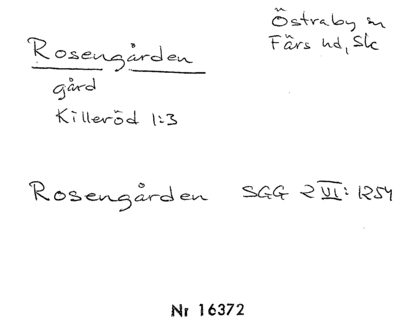 Rosengården
gård
Killeröd 1:3
Östraby sn
Färs hd, Sk
Rosengården SGG 2 VI: 1254
Nr 16372